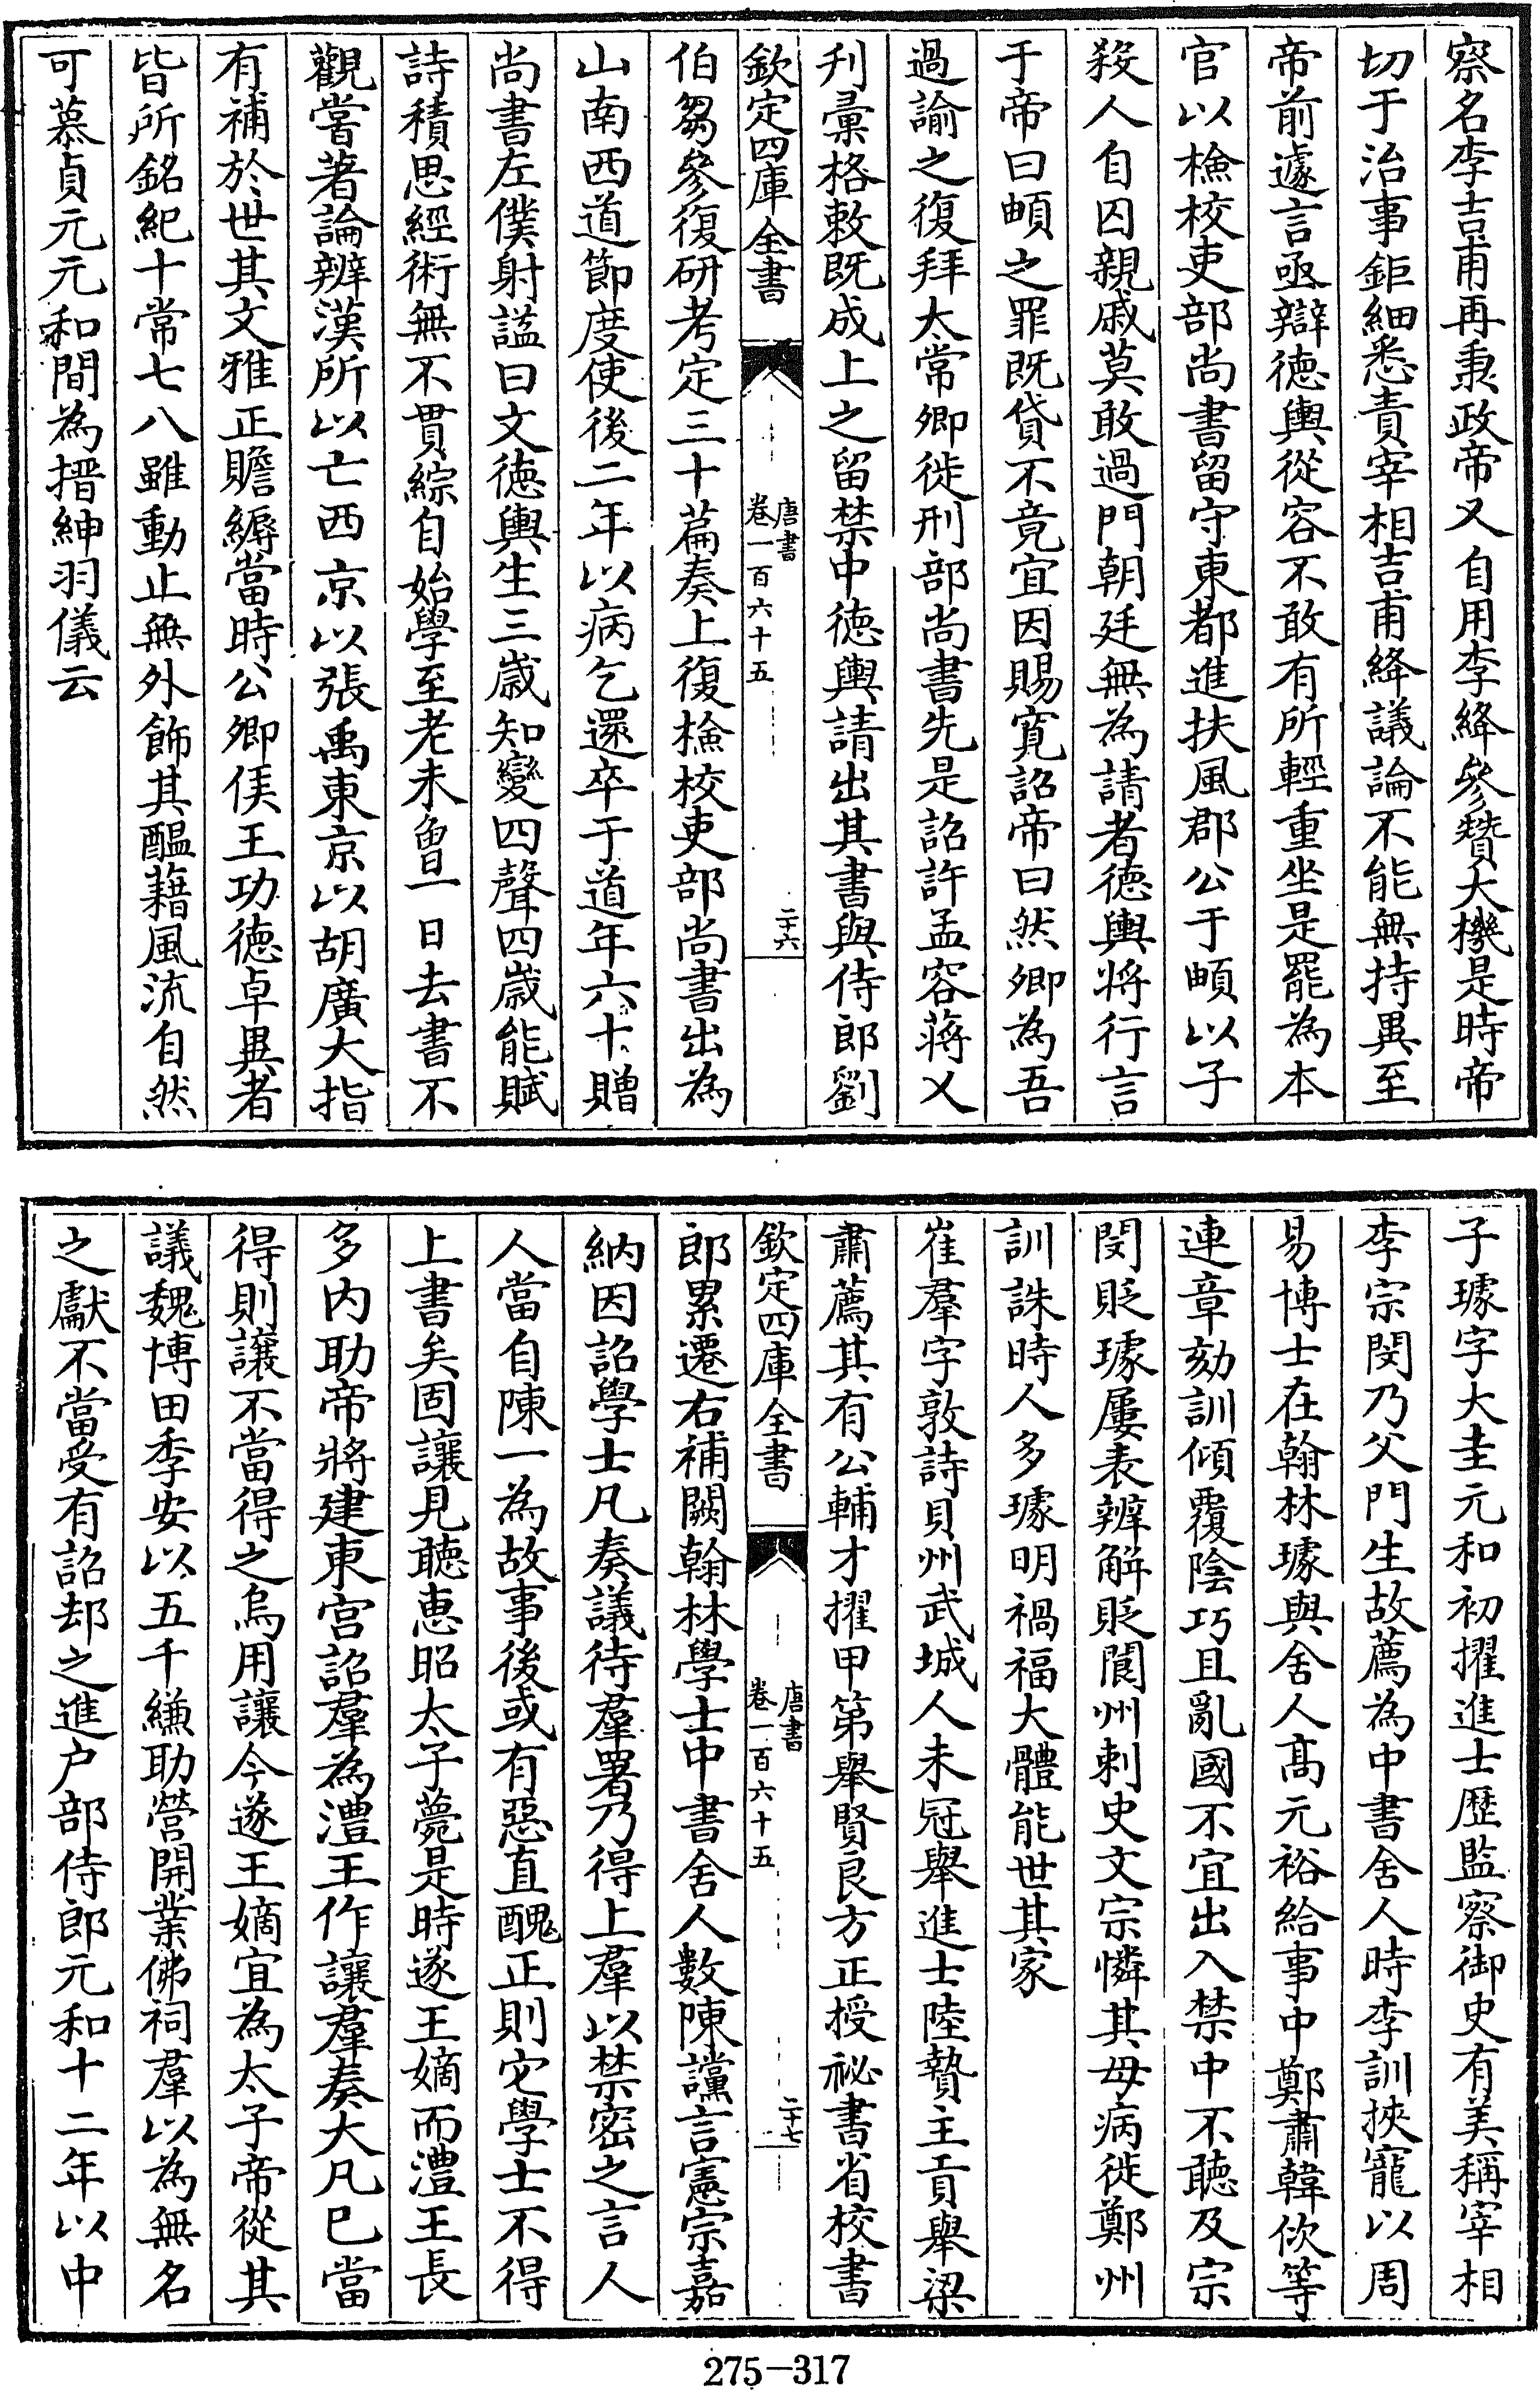 察名李吉甫再秉政帝又自用李絳參贊大機是時帝
切于治事鉅細悉責宰相吉甫絳議論不能無持異至
帝前遽言亟辯徳輿從容不敢有所輕重坐是罷為本
官以檢校吏部尚書留守東都進扶風郡公于頔以子
殺人自囚親戚莫敢過門朝廷無為請者徳輿將行言
于帝曰頔之罪既貸不竟宜因賜寛詔帝曰然卿為吾
過諭之復拜太常卿徙刑部尚書先是詔許孟容蔣乂
刋彚格敕既成上之留禁中徳輿請出其書與侍郎劉
欽定四庫全書
唐書
卷一百六十五
二十六
伯芻參復研考定三十篇奏上復檢校吏部尚書出為
山南西道節度使後二年以病乞還卒于道年六十贈
尚書左僕射諡曰文徳輿生三歲知變四聲四歲能賦
詩積思經術無不貫綜自始學至老未曾一日去書不
觀嘗著論辨漢所以亡西京以張禹東京以胡廣大指
有補於世其文雅正贍縟當時公卿侯王功徳卓異者
皆所銘紀十常七八雖動止無外飾其醖藉風流自然
可慕貞元元和間為搢紳羽儀云
子璩字大圭元和初擢進士歴監察御史有美稱宰相
李宗閔乃父門生故薦為中書舍人時李訓挾寵以周
易博士在翰林璩與舍人髙元裕給事中鄭肅韓佽等
連章劾訓傾覆陰巧且亂國不宜出入禁中不聴及宗
閔貶璩屢表辨解貶閬州刺史文宗憐其母病徙鄭州
訓誅時人多璩明禍福大體能世其家
崔羣字敦詩貝州武城人未冠舉進士陸贄主貢舉梁
肅薦其有公輔才擢甲第舉賢良方正授祕書省校書
欽定四庫全書
唐書
卷一百六十五
二十七
郎累遷右補闕翰林學士中書舍人數陳讜言憲宗嘉
納因詔學士凡奏議待羣署乃得上羣以禁密之言人
人當自陳一為故事後或有惡直醜正則它學士不得
上書矣固讓見聴恵昭太子薨是時遂王嫡而澧王長
多内助帝將建東宫詔羣為澧王作讓羣奏大凡已當
得則讓不當得之烏用讓今遂王嫡宜為太子帝從其
議魏博田季安以五千縑助營開業佛祠羣以為無名
之獻不當受有詔却之進户部侍郎元和十二年以中
275-317